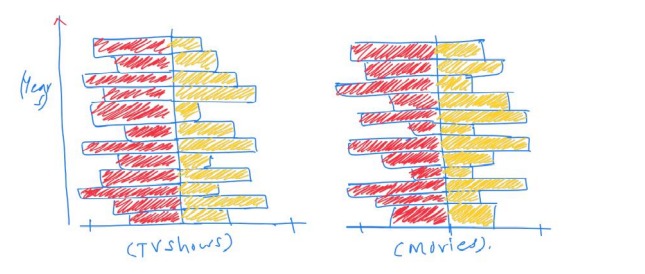 (Years)
(TVshows)
(Movies).